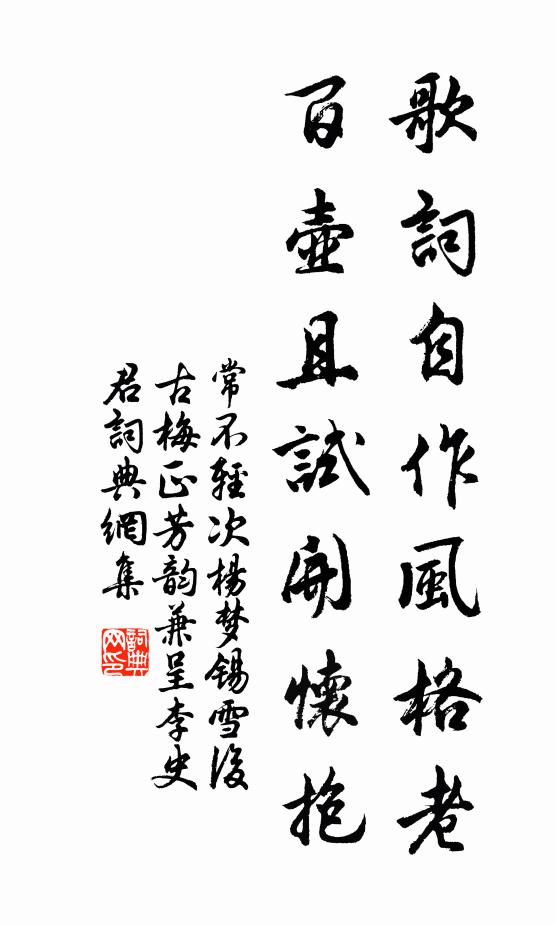 歌詞自作風格老
百壺且試開懷抱
常不輕次楊梦錫雪後
古梅正芳韵兼呈李史
君詞典網集
詞典网印